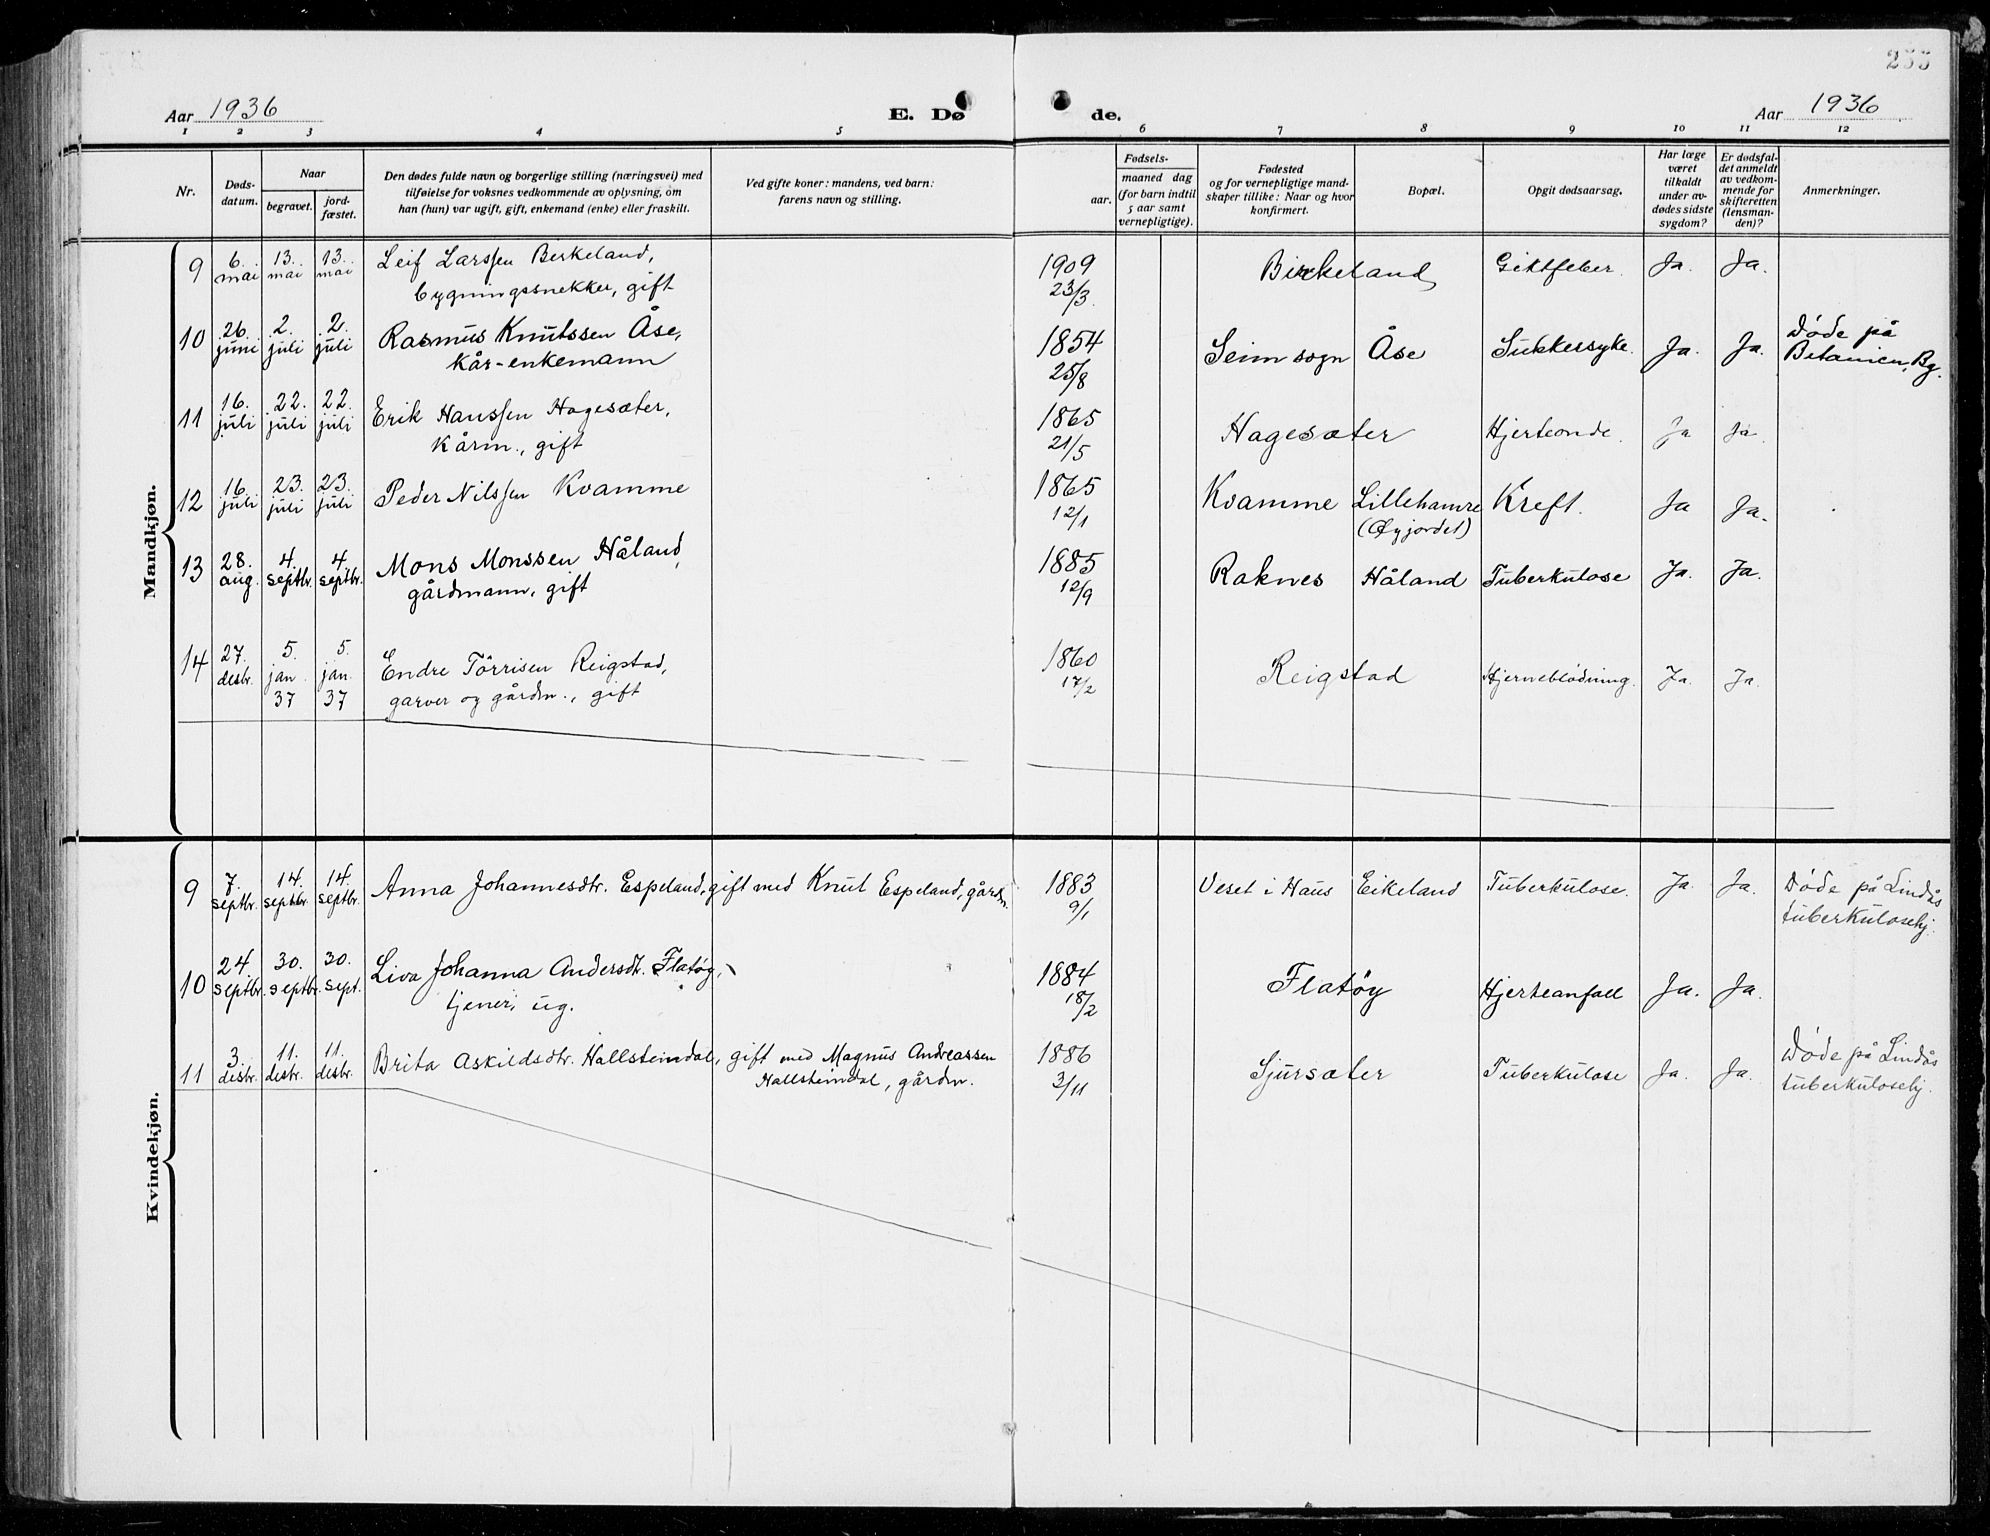 255
Aar 1936
E. Dø
de.
Aar 1936
1 2 3 4 5 6 7 8 9 10 11 12
Nr.
Døds-
datum.
Naar
begravet.
jord-
fæstet.
Den dødes fulde navn og borgerlige stilling (næringsvei) med
tilføielse for voksnes vedkommende av oplysning, om
han (hun) var ugift, gift, enkemand (enke) eller fraskilt.
Ved gifte koner: mandens, ved barn:
farens navn og stilling.
Fødsels-
aar.
maaned dag
(for barn indtil
5 aar samt
vernepligtige).
Fødested
og for vernepligtige mand-
skaper tillike: Naar og hvor
konfirmert.
Bopæl.
Opgit dødsaarsag.
Har læge
været
tilkaldt
under av-
dødes sidste
sygdom?
Er dødsfal-
det anmeldt
av vedkom-
mende for
skifteretten
(lensman-
den)?
Anmerkninger.
Mandkjøn.
9 6. mai 13. mai 13. mai Leif Larssen Berkeland, 1909 Birkeland Giktfeber. Ja. Ja.
bygningssnekker, gift 23/3.
10 26. juni 2. juli 2. juli Rasmus Knutssen Åse, 1854 Seim sogn Åse Sukkersyke. Ja. Ja. Døde på
kår-enkemann 25/8 Betanien, Bg.
11 16. juli 22. juli 22. juli Erik Hanssen Hagesæter, 1865 Hagesæter Hjerteonde. Ja Ja.
kårm., gift 21/5
12 16. juli 23. juli 23. juli Peder Nilssen Kvamme 1865 Kvamme Lillehamre Kreft. Ja Ja.
12/1 (Øyjordet)
13 28. aug. 4. septbr. 4. septbr. Mons Monssen Håland, 1885 Raknes Håland Tuberkulose Ja. Ja.
gårdmann, gift 12/9
14 27. desbr. 5. jan. 37 5. jan. 37 Endre Tørrisen Reigstad, 1860 Reigstad Hjerneblødning. Ja. Ja.
garver og gårdm., gift 17/2
Kvindekjøn.
9 7. septbr. 14. septbr. 14. septbr. Anna Johannesdtr. Espeland, gift med Knut Espeland, gårdm. 1883 Veset i Haus Eikeland Tuberkulose. Ja. Ja. Døde på Lindås
9/1 tuberkulosehj.
10 24. septbr. 30. septbr. 30. sept. Liva Johanna Andersdt. Flatøy, 1884 Flatøy Hjerteanfall Ja. Ja.
tjener, ug. 18/2
11 3. desbr. 11. desbr. 11. desbr. Brita Askildsdtr. Hallsteindal, gift med Magnus Andreassen 1886 Sjursæter Tuberkulose Ja. Ja. Døde på Lindås
Hallsteindal, gårdm. 3/11 tuberkulosehj.